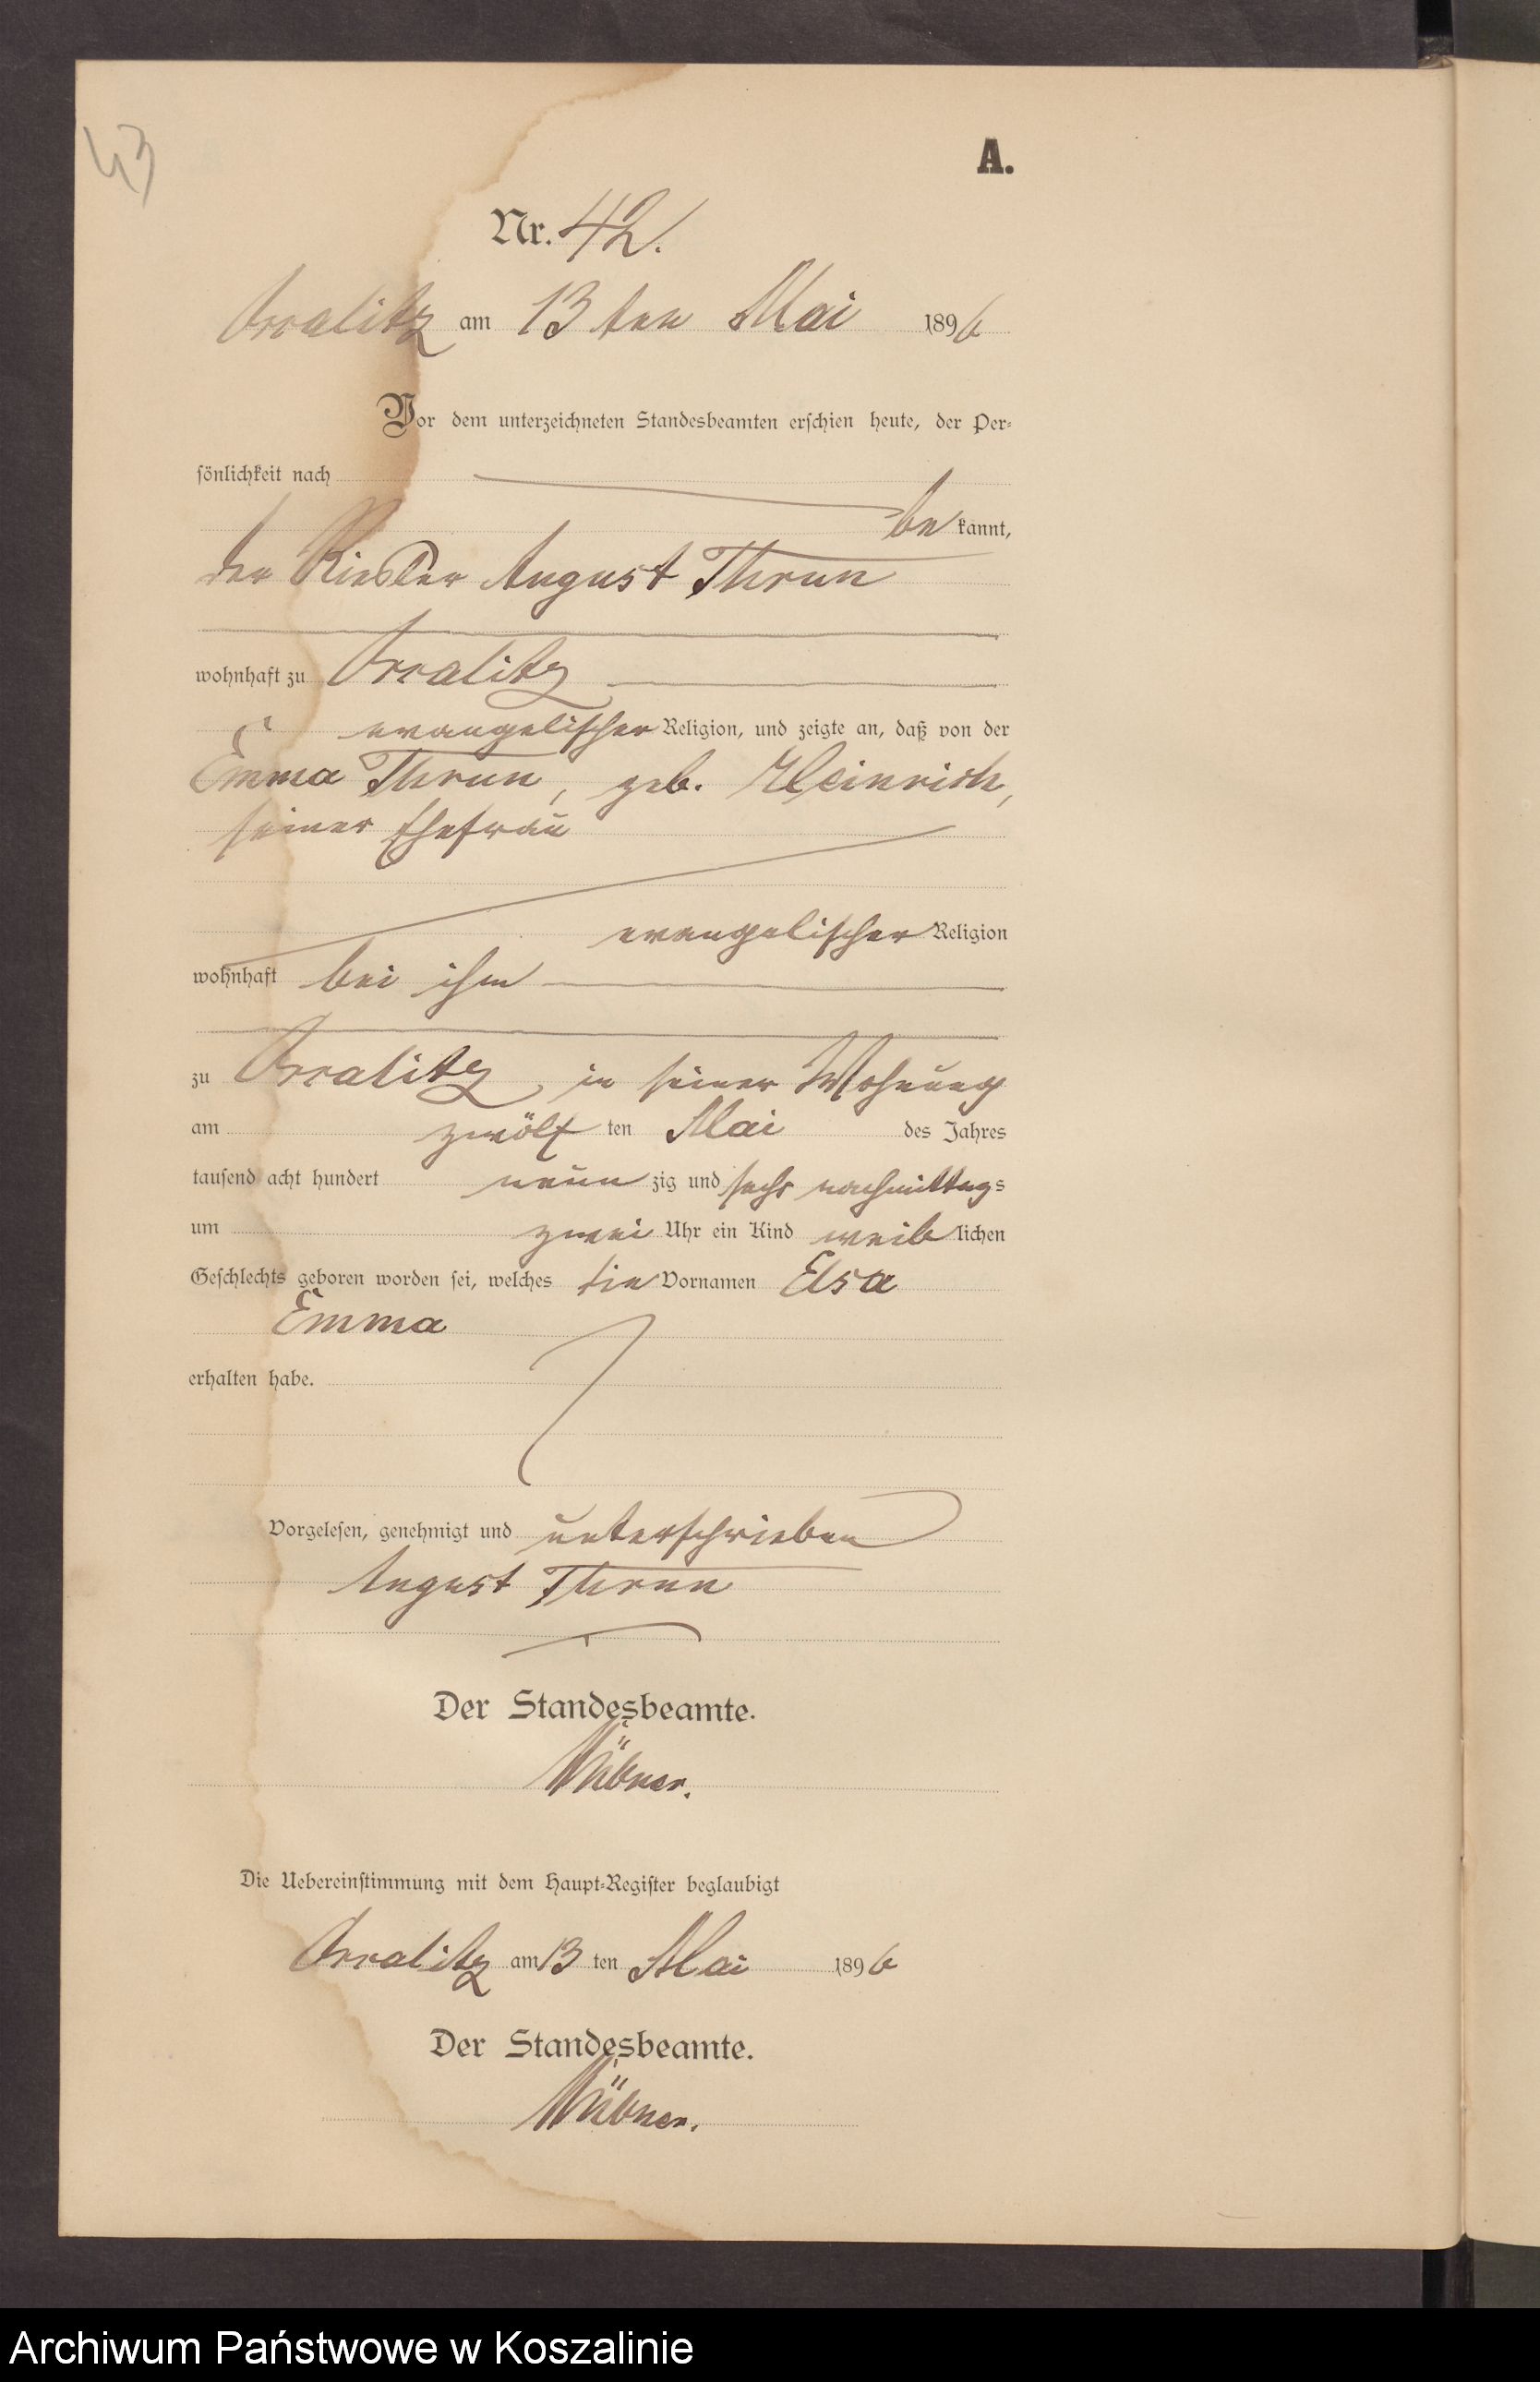 43
A.
Nr. 42.
Arralitz am 13 ten Mai 1896
Vor dem unterzeichneten Standesbeamten erschien heute, der Per-
sönlichkeit nach
be kannt,
der August Thrun
wohnhaft zu Arralitz
evangelischer Religion, und zeigte an, daß von der
Emma Thrun, geb. Heinrich,
seiner Ehefrau
evangelischer Religion
wohnhaft bei ihm
zu Arralitz, in seiner Wohnung
am zwölf ten Mai des Jahres
tausend acht hundert neun zig und sechs nachmittags
um zwei Uhr ein Kind weib lichen
Geschlechts geboren worden sei, welches die Vornamen Elsa
Emma
erhalten habe.
Vorgelesen, genehmigt und unterschrieben
August Thrun
Der Standesbeamte.
Die Uebereinstimmung mit dem Haupt-Register beglaubigt
Arralitz am 13 ten Mai 1896
Der Standesbeamte.
Archiwum Państwowe w Koszalinie